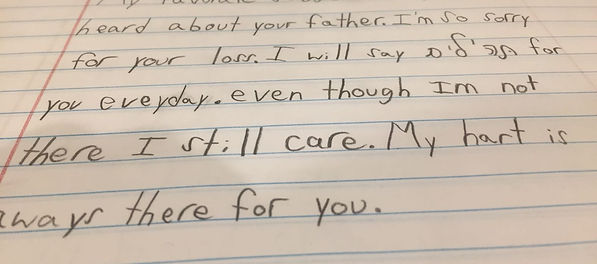 heard about your father. I'm so sorry
for your loss. I will say תהילים for
you everyday. even though Im not
there I still care. My hart is
ways there for you.